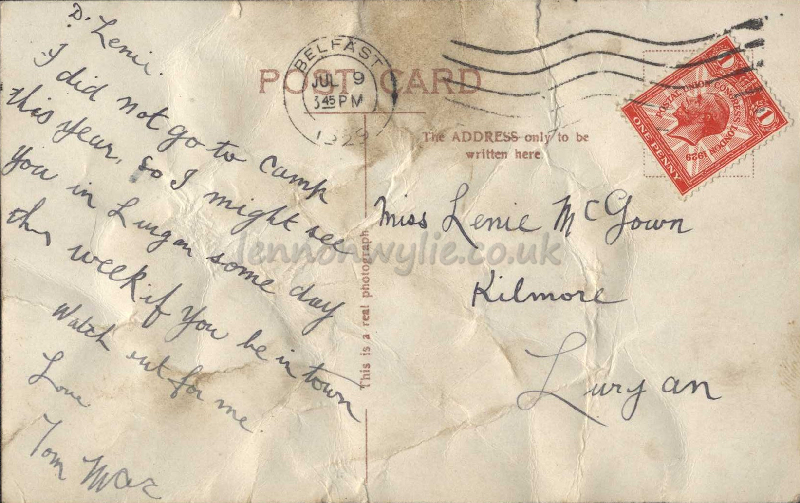 D. Lenie.
I did not go to camp
this year, so I might see
you in Lurgan some day
this week if you be in town
Watch out for me.
Love
Tom
POST CARD
BELFAST
JUL 9
3.45 PM
1929
The ADDRESS only to be
written here
POSTAL UNION CONGRESS LONDON 1929
ONE PENNY
1
1
Miss Lenie McGown
Kilmore
Lurgan
This is a real photograph
lennonwylie.co.uk